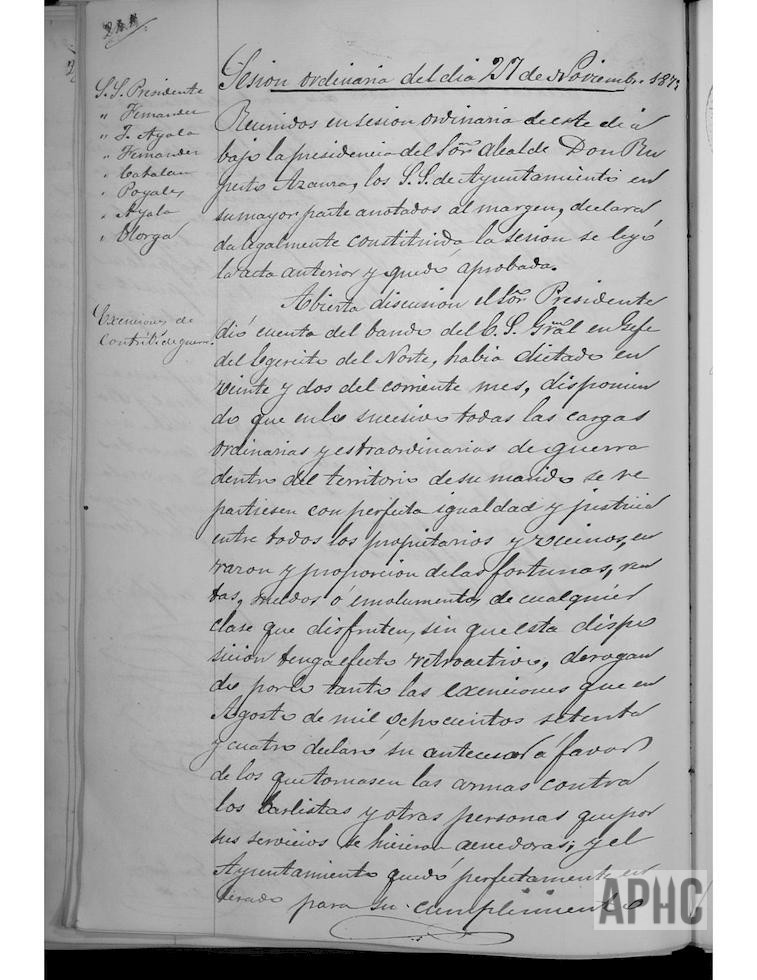 Sesion ordinaria del dia 27 de Noviembre 187
S.S. Presidente
" Fernandez
" J. Ayala
" Fernandez
" Catalan
" Poyales
" Ayala
" Olorga
Reunidos en sesion ordinaria de este dia
bajo la presidencia del Sor. Alcalde Don Ru
perto Azanra, los S.S. de Ayuntamiento en
su mayor parte anotados al margen, declara
da legalmente constituida la sesion se leyó
la acta anterior y quedó aprobada.
Exenciones de
Contrib.s de guerra.
Abierta discusion el Sor. Presidente
dió cuenta del bando del E. S. Gral en Gefe
del Egercito del Norte, habia dictado en
veinte y dos del corriente mes, disponien
do que en lo sucesivo todas las cargas
ordinarias y estraordinarias de guerra
dentro del territorio de su mando se re
partiesen con perfecta igualdad y justicia
entre todos los propietarios y vecinos, en
razon y proporcion de las fortunas, ren
tas, sueldos o emolumentos de cualquier
clase que disfruten, sin que esta dispo
sicion tenga efecto retroactivo, derogan
do por lo tanto las exenciones que en
Agosto de mil ochocientos setenta
y cuatro declaró su antecesor a favor
de los que tomasen las armas contra
los Carlistas y otras personas que por
sus servicios se hicieran acreedoras; y el
Ayuntamiento quedó perfectamente en
terado para su cumplimiento
APHC